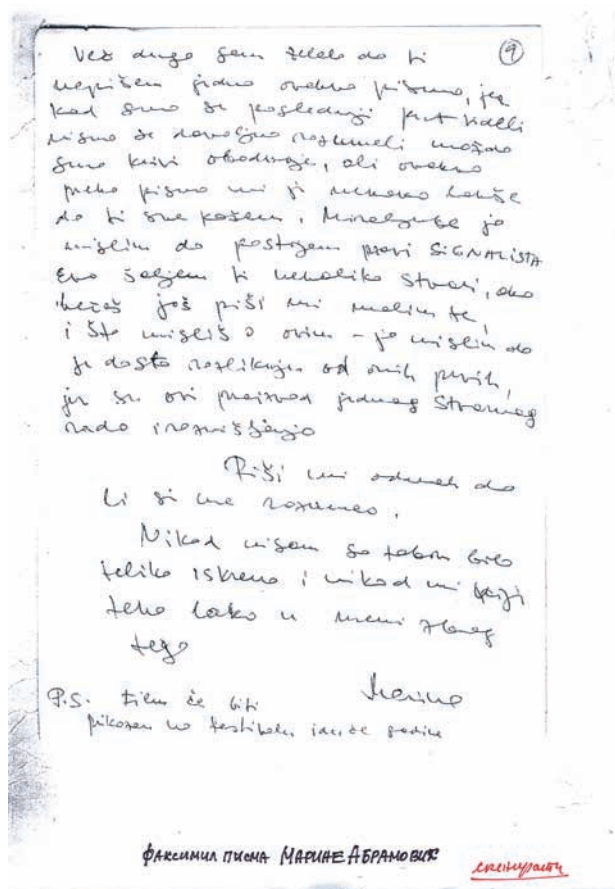 Več dugo sam želela da ti
⑨
napišem jedno ovakvo pismo, jer
kad smo se poslednji put videli
nismo se dovoljno razumeli možda
smo krivi obadvoje, ali ovako
preko pisma mi je nekako lakše
da ti sve kažem. Miroljube ja
mislim da postajem pravi SIGNALISTA
Evo šaljem ti nekoliko stvari, ako
hočeš još piši mi molim te,
i šta misliš o ovim – ja mislim da
se dosta razlikuju od onih prvih,
jer su ovi proizvod jednog stvarnog
rada i razmišljanja
Piši mi odmah da
li si me razumeo.
Nikad nisam sa tobom bila
toliko iskrena i nikad mi nije
tako lako u meni zbog
toga
Marina
P.S. Film će biti
prikazan na festivalu iduće godine
ФАКСИМИЛ ПИСМА МАРИНЕ АБРАМОВИЋ
скенирати